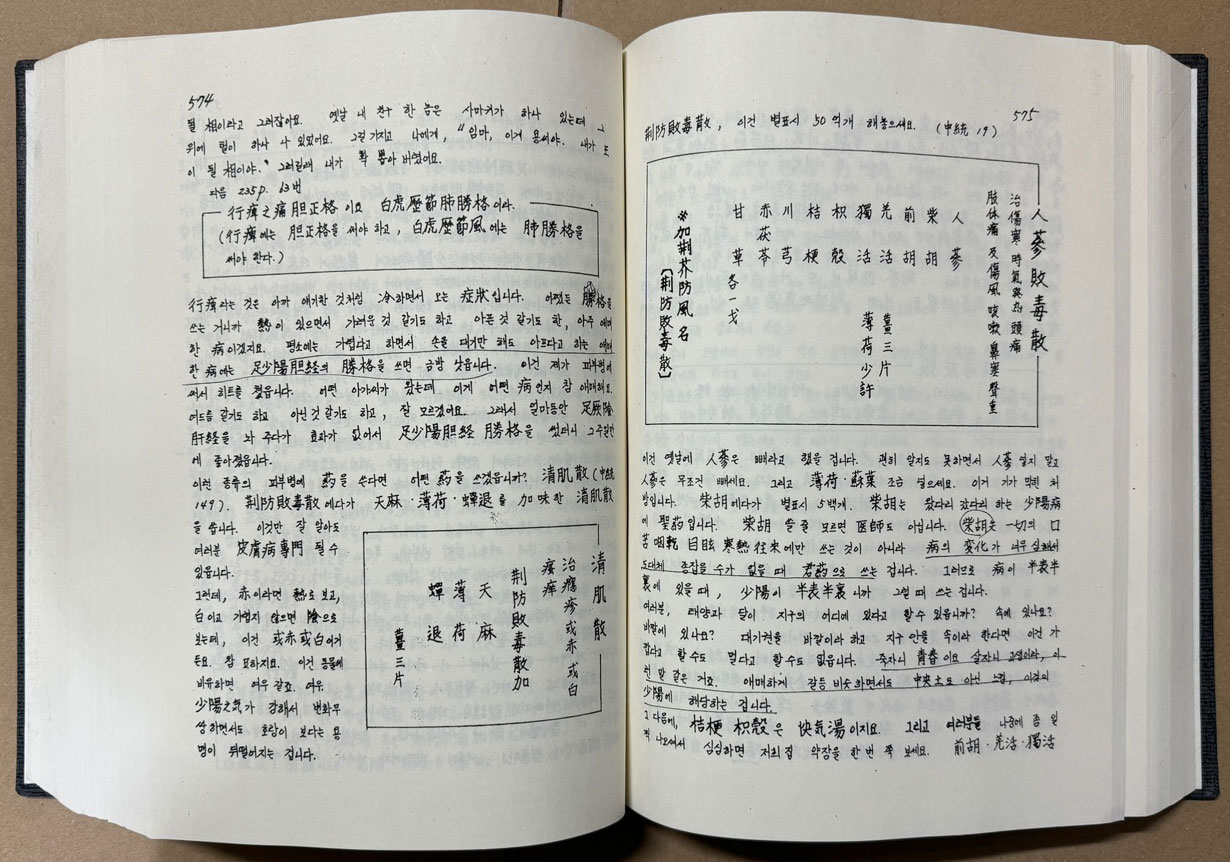 574
될 相이라고 그러잖아요. 옛날 내 친구 한 놈은 사마귀가 하나 있는데 그
위에 털이 하나 나 있었어요. 그걸 가지고 나에게, "임마, 이게 용씨야. 내가 또
이 될 相이야." 그러길래 내가 확 뽑아 버렸어요.
다음 235p. 63번
行痺之痛胆正格이요 白虎歷節肺勝格이다.
(行痺에는 胆正格을 써야 하고, 白虎歷節風에는 肺勝格을
써야 한다.)
行痺라는 것은 아까 얘기한 것처럼 冷하면서 오는 症狀입니다. 어쨌든 勝格을
쓰는 거니까 熱이 있으면서 가려운 것 같기도 하고, 아픈 것 같기도 한, 아주 애매
한 病이겠지요. 평소에는 가렵다고 하면서 손을 대기만 해도 아프다고 하는 애매
한 病에는 足少陽胆経의 勝格을 쓰면 금방 낫습니다. 이건 제가 피부병에
써서 히트를 쳤읍니다. 어떤 아가씨가 왔는데 이게 어떤 病인지 참 애매해요.
여드름 같기도 하고 아닌 것 같기도 하고, 잘 모르겠어요. 그래서 얼마동안 足厥陰
肝経을 놔 주다가 효과가 없어서 足少陽胆経 勝格을 썼더니 그 주일만
에 좋아졌읍니다.
이런 종류의 피부병에 药을 쓴다면 어떤 药을 쓰겠읍니까? 清肌散(中統
149). 荆防敗毒散에다가 天麻·薄荷·蟬退를 加味한 清肌散
을 씁니다. 이것만 잘 알아도
여러분 皮膚病専門 될 수
있읍니다.
그런데, 赤이라면 熱로 보고,
白이고 가렵지 않으면 陰으로
보는데, 이건 或赤或白이거
든요. 참 묘하지요. 이건 동물에
비유하면 여우 같죠. 여우
少陽之氣가 강해서 변화무
쌍하면서도 호랑이 보다는 용
맹이 뒤떨어지는 겁니다.
清肌散
治癮疹或赤或白
瘙痒
荆防敗毒散加
天麻
薄荷
蟬退
薑三片
575
荆防敗毒散, 이건 별표시 50억개 해놓으세요. (中統 19)
人蔘敗毒散
治傷寒時氣與 頭痛
肢体痛及傷風咳嗽鼻塞聲重
人蔘
柴胡
前胡
羌活
獨活
枳殼
桔梗
川芎
赤茯苓
甘草
各一戈
薑三片
薄荷少許
※加荆芥防風名
[荆防敗毒散]
이건 옛날에 人蔘은 빼라고 했을 겁니다. 괜히 알지도 못하면서 人蔘 넣지 말고
人蔘은 무조건 빼세요. 그리고 薄荷·蘇葉 조금 넣으세요. 이거 기가 막힌 처
방입니다. 柴胡에다가 별표시 5백개. 柴胡는 왔다리 갔다리 하는 少陽病
에 聖药입니다. 柴胡 쓸 줄 모르면 医師도 아닙니다. 柴胡는 一切의 口
苦咽乾 目眩 寒熱往來에만 쓰는 것이 아니라 病의 変化가 너무 심해서
도대체 종잡을 수가 없을 때 君药으로 쓰는 겁니다. 그러므로 病이 半表半
裏에 있을 때, 少陽이 半表半裏니까 그럴 때 쓰는 겁니다.
여러분, 태양과 달이 지구의 어디에 있다고 할 수 있읍니까? 속에 있나요?
바깥에 있나요? 대기권을 바깥이라 하고 지구 안을 속이라 한다면 이건 가
깝다고 할 수도 멀다고 할 수도 없읍니다. 죽자니 青春이요 살자니 고생이라, 이
런 말 같은 거죠. 애매하게 갈등 비슷하면서도 中央土도 아닌 느낌, 이것이
少陽에 해당하는 겁니다.
그 다음에, 桔梗 枳殼은 快気湯이지요. 그리고 여러분들 나중에 좀 일
찍 나오셔서 심심하면 저희 집 약장을 한 번 쭉 보세요. 前胡·羌活·獨活